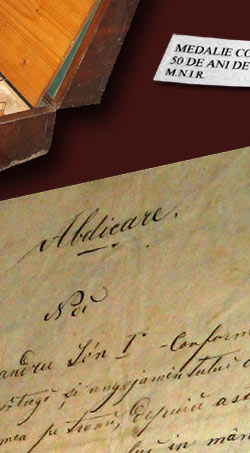 MEDALIE CO
50 DE ANI DE
M.N.I.R.
Abdicare.
Noi
andru Ión I° Conform
și angajamentului
mea pe tronŭ, depuiŭ ast
în mân